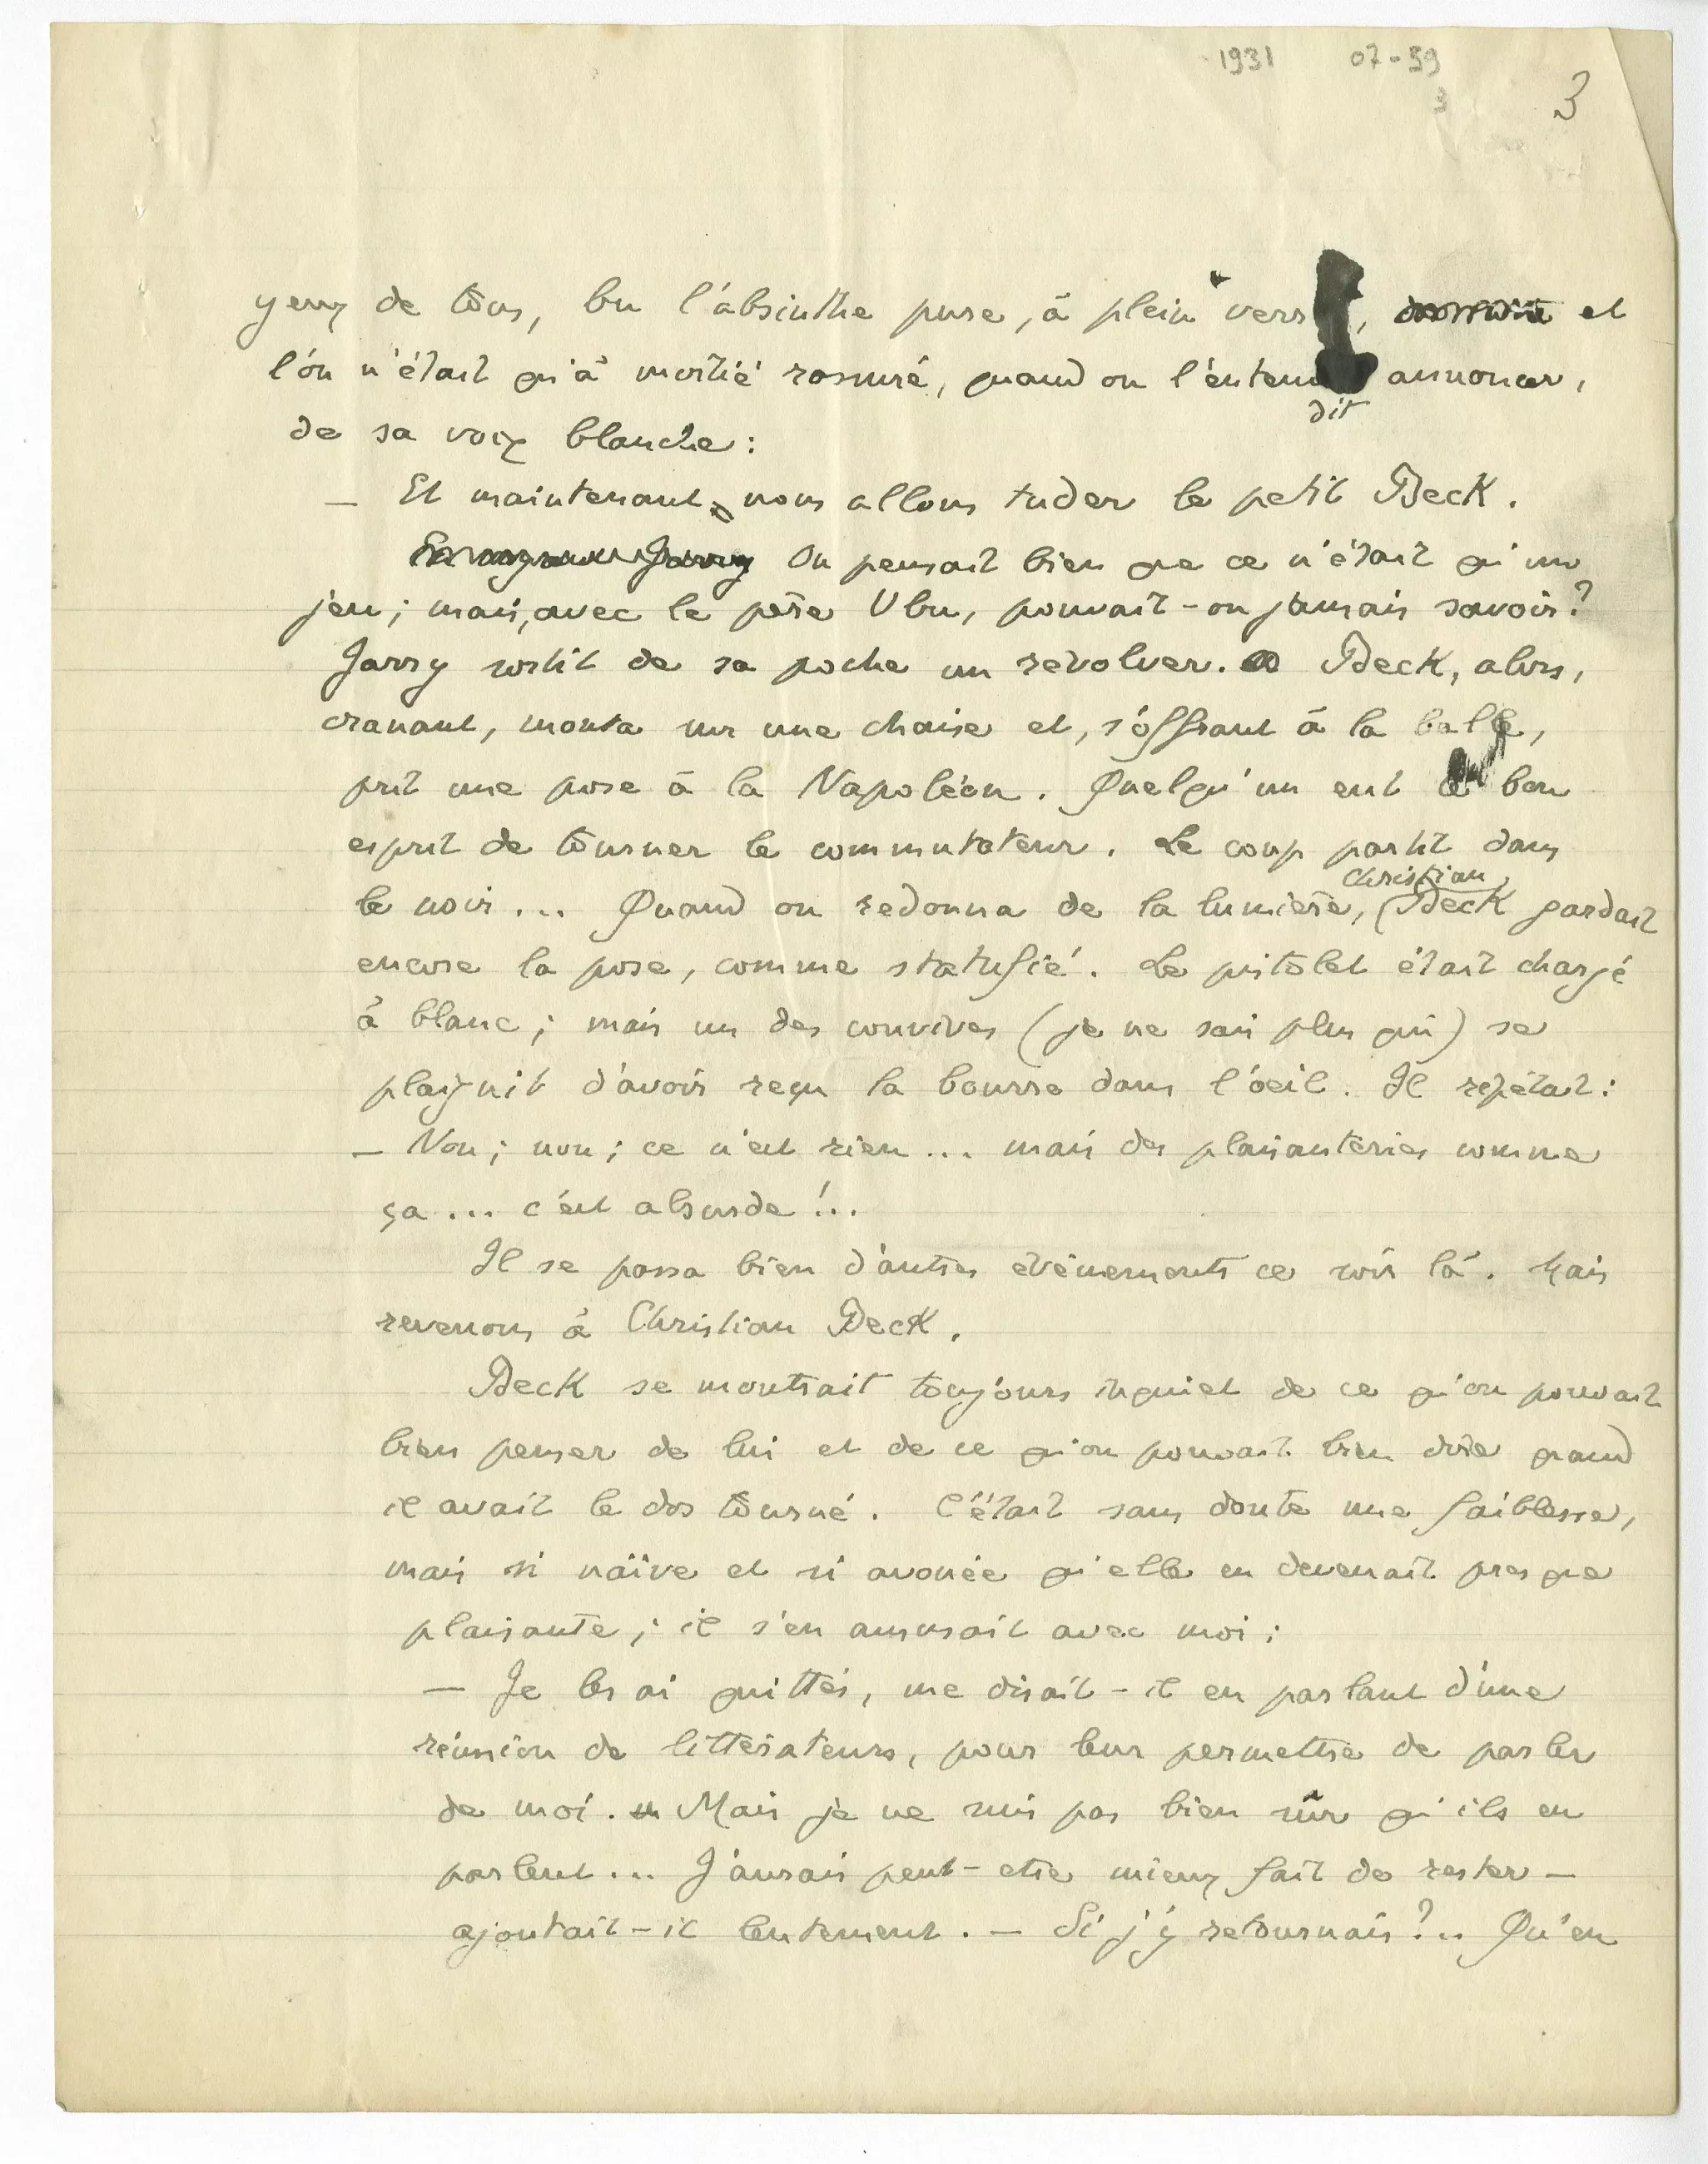 1931 07-39
3
3
yeux de tous, bu l'absinthe pure, à plein verre, et
l'on n'était qu'à moitié rassuré, quand on l'entendit annoncer,
de sa voix blanche :
— Et maintenant, nous allons tuder le petit Beck.
On pensait bien que ce n'était qu'un
jeu ; mais, avec le père Ubu, pouvait-on jamais savoir ?
Jarry sortit de sa poche un revolver. Beck, alors,
cranant, monta sur une chaise et, s'offrant à la balle,
prit une pose à la Napoléon. Quelqu'un eut le bon
esprit de tourner le commutateur. Le coup partit dans
le noir... Quand on redonna de la lumière, Christian Beck gardait
encore la pose, comme statufié. Le pistolet était chargé
à blanc ; mais un des convives (je ne sais plus qui) se
plaignit d'avoir reçu la bourre dans l'oeil. Il répétait :
— Non ; non ; ce n'est rien... mais des plaisanteries comme
ça... c'est absurde !..
Il se passa bien d'autres évènements ce soir là. Mais
revenons à Christian Beck.
Beck se montrait toujours inquiet de ce qu'on pouvait
bien penser de lui et de ce qu'on pouvait bien dire quand
il avait le dos tourné. C'était sans doute une faiblesse,
mais si naïve et si avouée qu'elle en devenait presque
plaisante ; il s'en amusait avec moi :
— Je les ai quittés, me disait-il en parlant d'une
réunion de littérateurs, pour leur permettre de parler
de moi. Mais je ne suis pas bien sûr qu'ils en
parlent... J'aurais peut-etre mieux fait de rester —
ajoutait-il lentement. — Si j'y retournais ?.. Qu'en